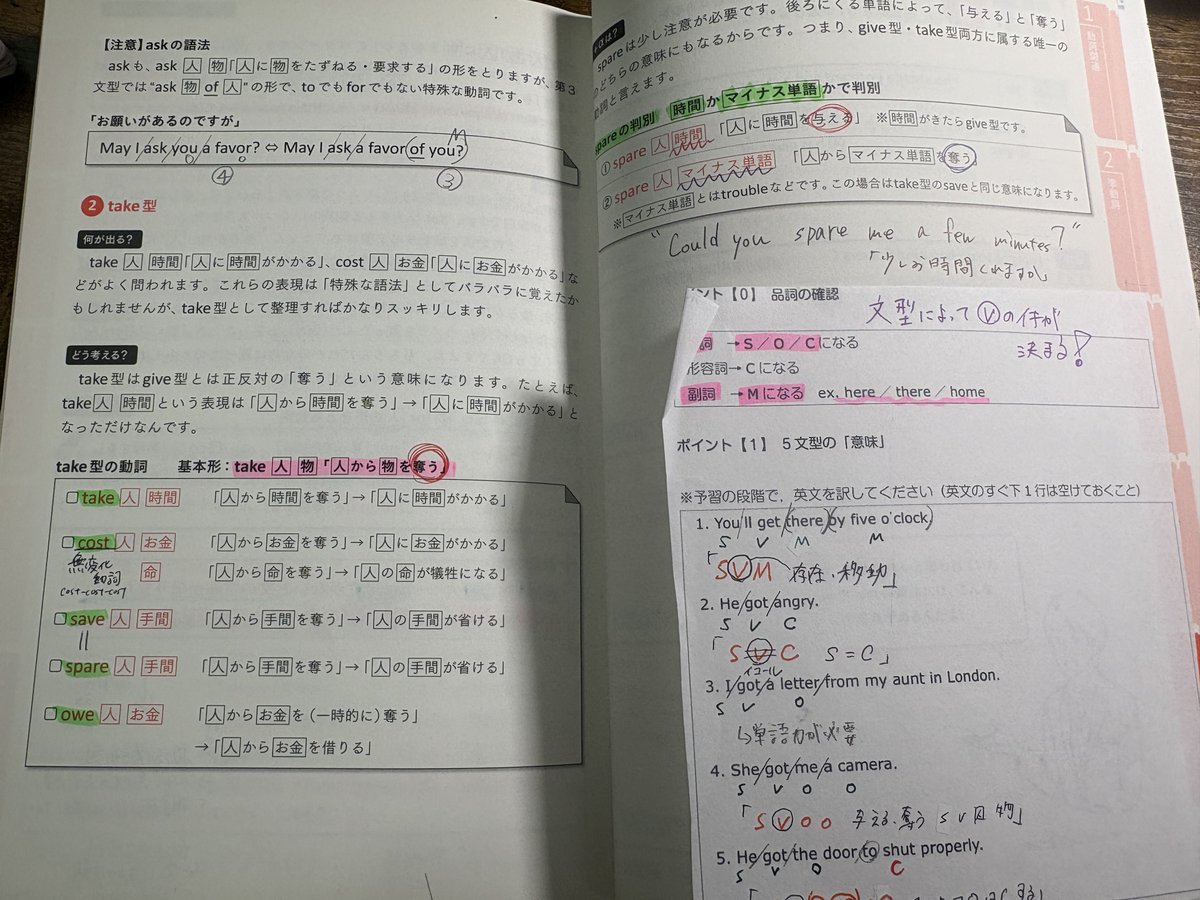 【注意】askの語法
askも、ask 人 物「人に物をたずねる・要求する」の形をとりますが、第3
文型では"ask 物 of 人"の形で、toでもforでもない特殊な動詞です。
「お願いがあるのですが」
May I ask you a favor? ⇔ May I ask a favor of you?
M
④ ③
2 take型
何が出る?
take 人 時間「人に時間がかかる」、cost 人 お金「人にお金がかかる」な
どがよく問われます。これらの表現は「特殊な語法」としてバラバラに覚えたか
もしれませんが、take型として整理すればかなりスッキリします。
どう考える?
take型はgive型とは正反対の「奪う」という意味になります。たとえば、
take 人 時間という表現は「人から時間を奪う」→「人に時間がかかる」と
なっただけなんです。
take型の動詞 基本形:take 人 物「人から物を奪う」
take 人 時間 「人から時間を奪う」→「人に時間がかかる」
cost 人 お金 「人からお金を奪う」→「人にお金がかかる」
無変化
動詞
cost-cost-cost
命 「人から命を奪う」→「人の命が犠牲になる」
save 人 手間 「人から手間を奪う」→「人の手間が省ける」
spare 人 手間 「人から手間を奪う」→「人の手間が省ける」
owe 人 お金 「人からお金を(一時的に)奪う」
→「人からお金を借りる」
は?
spareは少し注意が必要です。後ろにくる単語によって、「与える」と「奪う」
のどちらの意味にもなるからです。つまり、give型・take型両方に属する唯一の
動詞と言えます。
spareの判別 時間かマイナス単語かで判別
① spare 人 時間 「人に時間を与える」 ※時間がきたらgive型です。
② spare 人 マイナス単語 「人からマイナス単語を奪う」
※マイナス単語とはtroubleなどです。この場合はtake型のsaveと同じ意味になります。
"Could you spare me a few minutes?"
「少しお時間くれますか」
1
動詞の語法
2
準動詞
イント【0】 品詞の確認
文型によってⓋの作が
決まる!
詞 →S/O/Cになる
形容詞→Cになる
副詞 →Mになる ex. here/there/home
ポイント【1】 5文型の「意味」
※予習の段階で,英文を訳してください(英文のすぐ下1行は空けておくこと)
1. You'll get there by five o'clock.
S V M M
「SVM 存在・移動」
2. He got angry.
S V C
「SVC S=C」
イコール
3. I got a letter from my aunt in London.
S V O
↳単語力が必要
4. She got me a camera.
S V O O
「SVOO 与える・奪う SV人物」
5. He got the door to shut properly.
S V O C